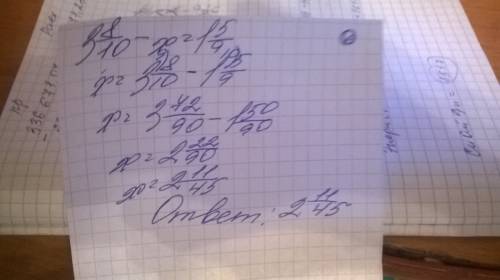 3 8/10 - x = 1 5/9
x = 3 8/10 - 1 5/9
x = 3 72/90 - 1 50/90
x = 2 22/90
x = 2 11/45
Ответ: 2 11/45